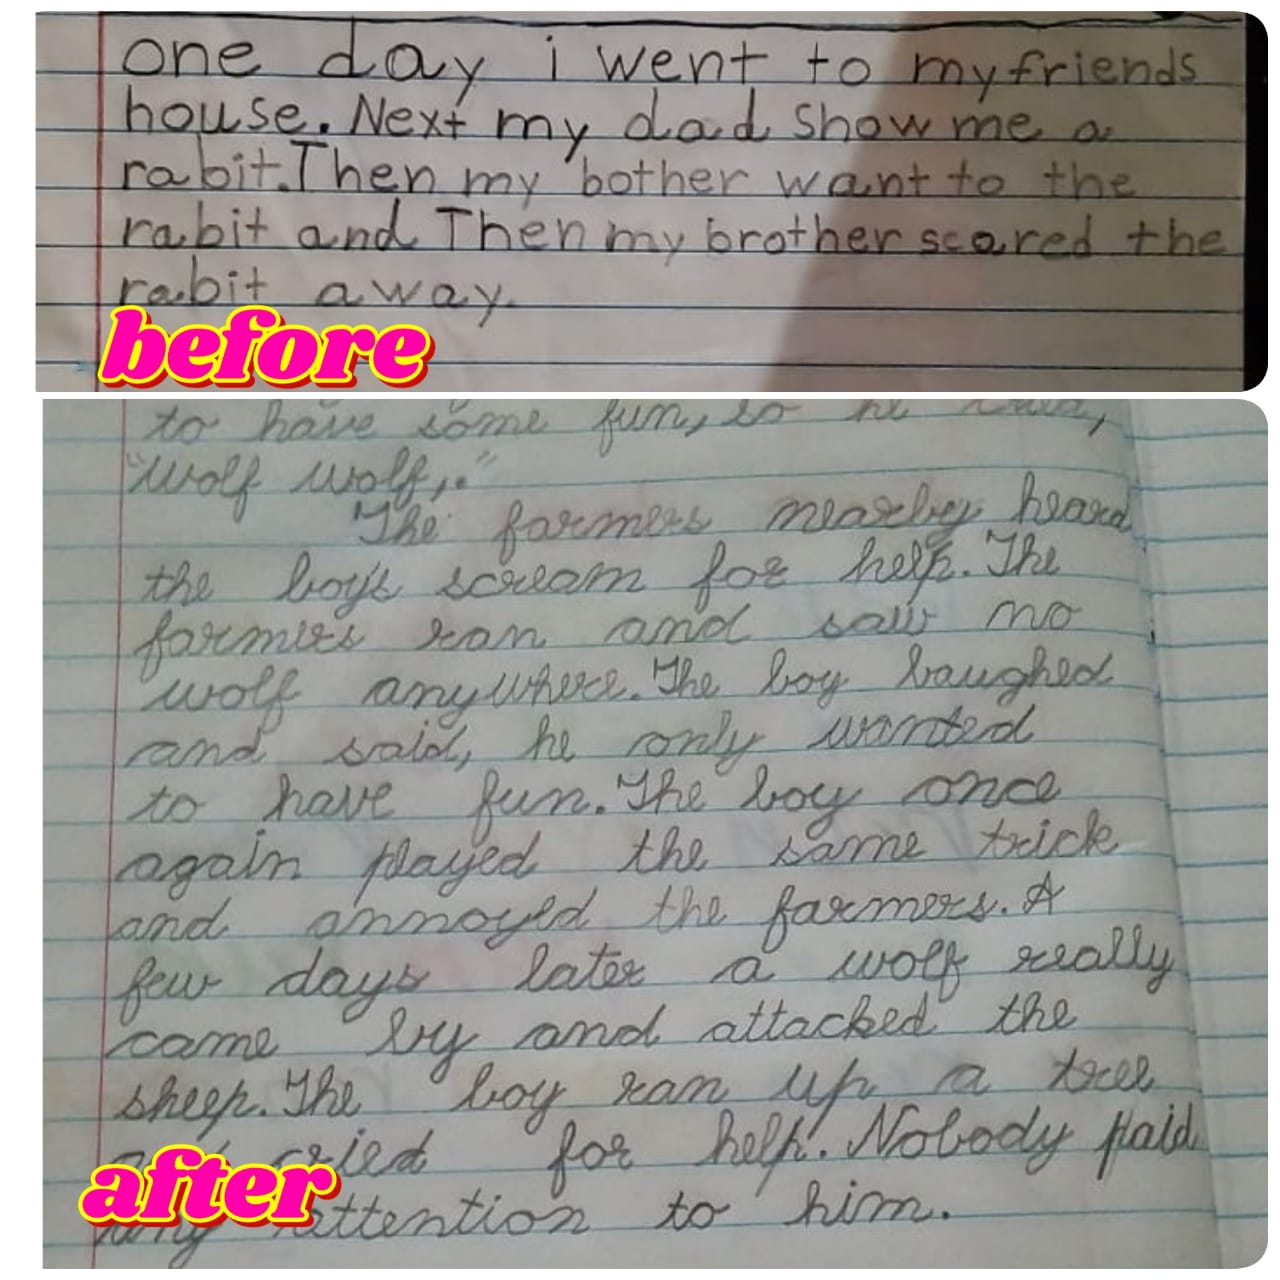 one day i went to my friends
house. Next my dad show me a
rabit. Then my bother want to the
rabit and Then my brother scared the
rabit away.
before
to have some fun, so he cried,
"Wolf wolf,."
The farmers nearby heard
the boy's scream for help. The
farmers ran and saw no
wolf anywhere. The boy laughed
and said, he only wanted
to have fun. The boy once
again played the same trick
and annoyed the farmers. A
few days later a wolf really
came by and attacked the
sheep. The boy ran up a tree
cried for help!. Nobody paid
after
attention to him.